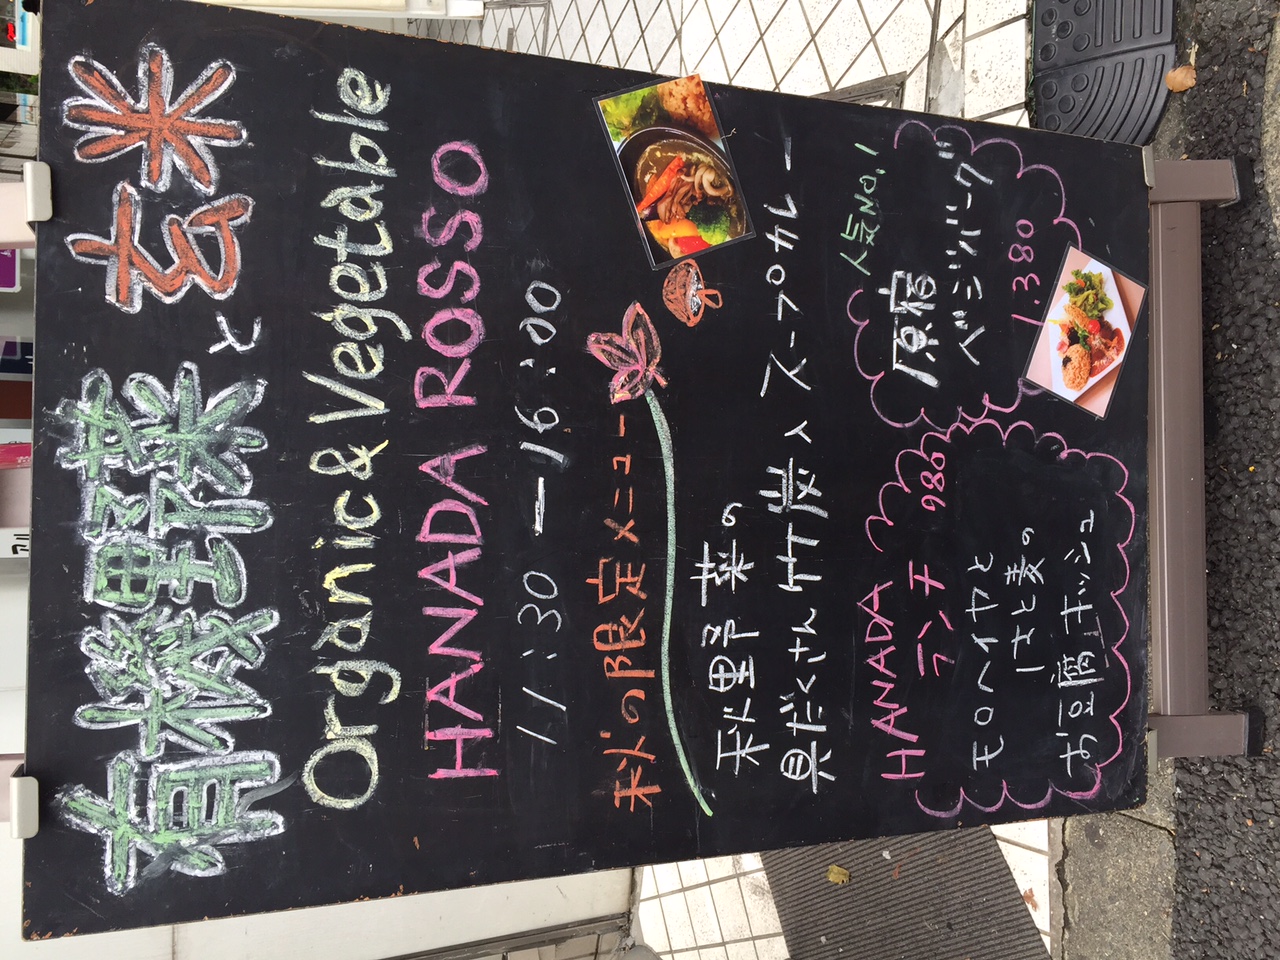 有機野菜と玄米
Organic&Vegetable
HANADA ROSSO
11:30 ー 16:00
秋の限定メニュー
秋野菜の
具だくさん竹炭入スープカレー
HANADA
ランチ 980
モロヘイヤと
はと麦の
お豆腐キッシュ
人気No.1
原宿
ベジバーグ
1.380